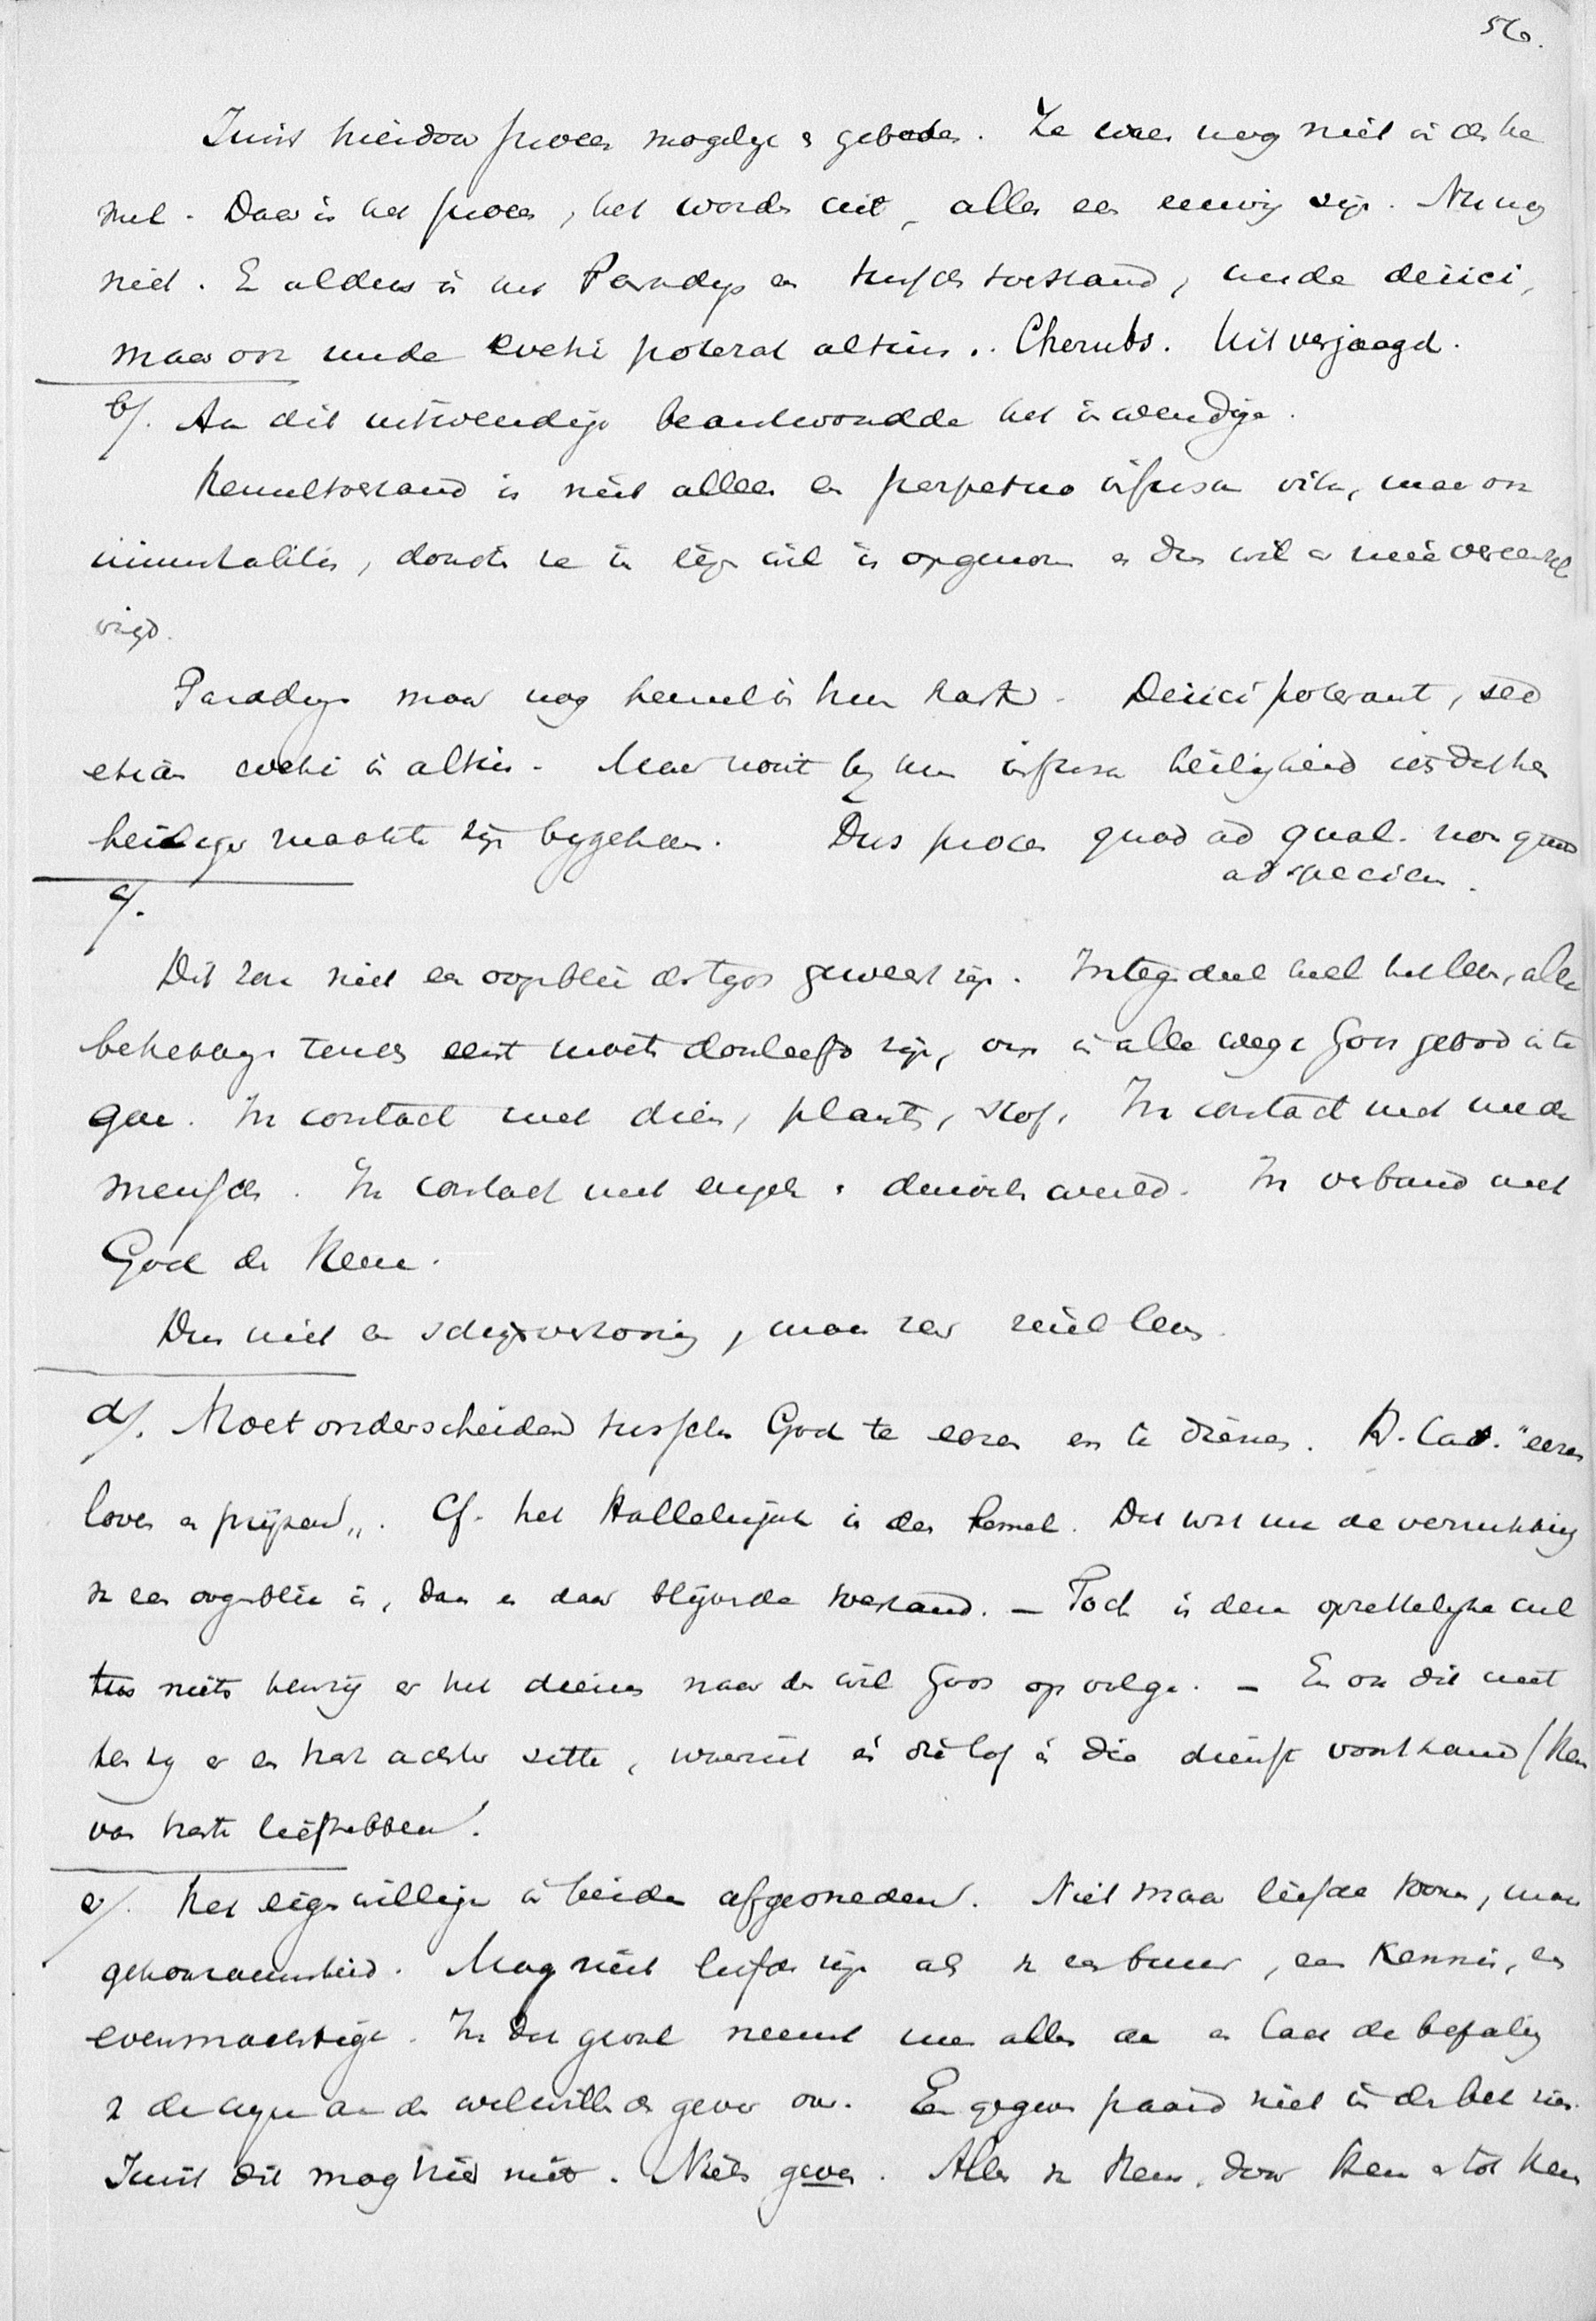 56.
Juist hierdoor proces mogelijk & geboden. Ze waren nog niet in den he
mel. Daar is het proces, het worden uit, alles een eeuwig zijn. Nu nog
niet. E aldus is het Paradijs een tusschen toestand, unde deiici,
maar ook unde evehi poterat altius. Cherubs. Uit verjaagd.
b/. Aan dit uitwendige beantwoordde het inwendige.
Hemeltoestand is niet alleen een perpetuo infusa vita, maar ook
immutabilis, doordat ze in eigen wil is opgenomen en dus wil er mee vereenzel
vigd.
Paradijs maar nog hemel in hun hart. Deiici poterant, sed
etiam evehi in altius. Maar nooit bij hun infusa heiligheid iets dat hen
heiliger maakte zijn bijgekomen. Dus proces quod ad qual. non quod
ad speciem.
c/.
Dit zou niet een oogenblik des tijds geweest zijn. Integendeel heel het leven, alle
 tenes eerst moeten doorleefd zijn, om in alle wegen Gods gebod in te
gaan. In contact met dier, plant, stof. In contact met mede
menschen. In contact met engelen & wereld. In verband met
God den Heere.
Dus niet een vertooning, maar zeer reëel leven.
d/. Moet onderscheiden tusschen God te eeren en te dienen. H. Cat. "eeren
loven en prijzen„. Cf. het Hallelujah in den hemel. Dat wat nu de verrukking
v een oogenblik is, dan en daar blijvende toestand. — Toch is deze opzettelijke cul
tus niets tenzij er het dienen naar den wil Gods op volge. — En ook dit niet
tenzij er een hart achter zitte, waaruit én die lof én die dienst voortkwam (Hem
van harte liefhebben).
e/. Het eigenwillige in beiden afgesneden. Niet maar liefde toonen, maar
gehoorzaamheid. Mag niet liefde zijn als v een buur, een kennis, een
evenmachtige. In dat geval neemt men alles aan en laat de bepaling
v de aan den welwillenden gever over. Een gegeven paard niet in den bek zien.
Juist dit mag hier niet. Niets geven. Alles v Hem, door Hem & tot Hem